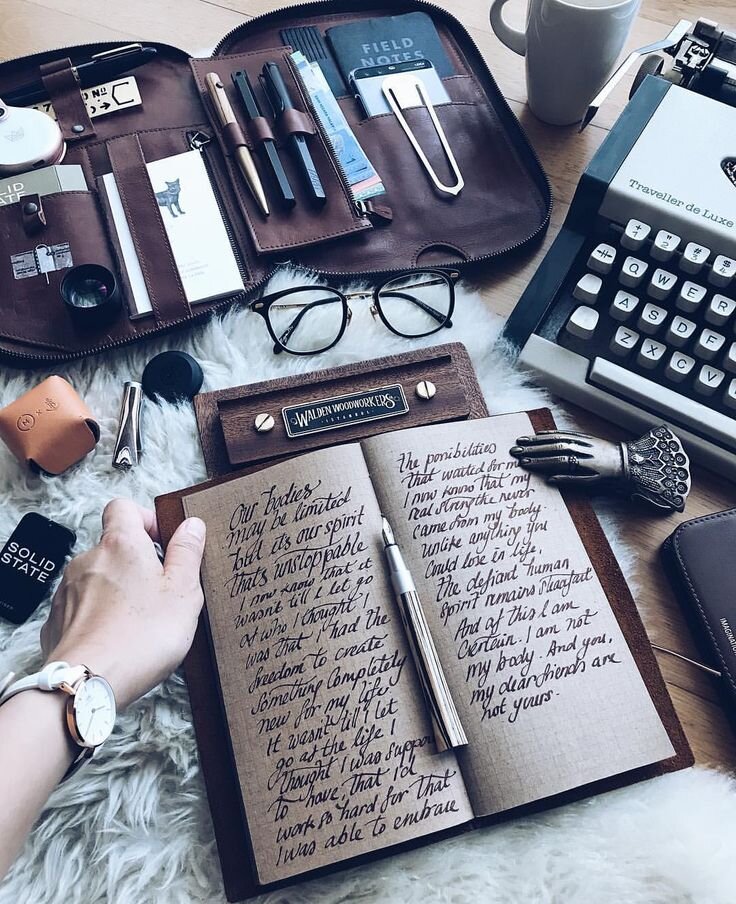 FIELD
NOTES
C
SOLID
STATE
Traveller de Luxe
Q W E R
A S D F
Z X C V
WALDEN WOODWORKERS
ISTANBUL
SOLID
STATE
Our bodies
may be limited
but its our spirit
that's unstoppable
I now know that it
wasn't till I let go
of who I thought I
was that I had the
freedom to create
something completely
new for my life
It wasn't till I let
go of the life I
thought I was suppo
to have that I'd
work so hard for that
I was able to embrace
the possibilities
that waited for m
I now know that my
real strengthe never
came from my body.
Unlike anything you
Could lose in life,
The defiant human
Spirit remains steadfast
And of this I am
Certain. I am not
my body. And you,
my dear friends are
not yours.